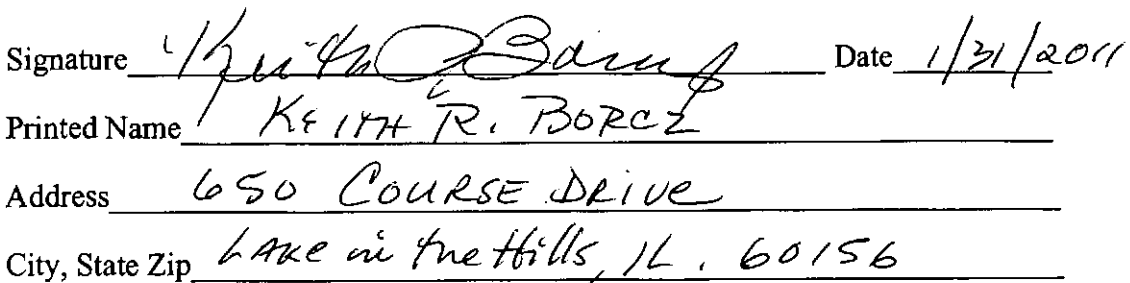 Signature Keith R Borcz Date 1/31/2011
Printed Name KEITH R. BORCZ
Address 650 COURSE DRIVE
City, State Zip LAKE in the Hills, IL. 60156